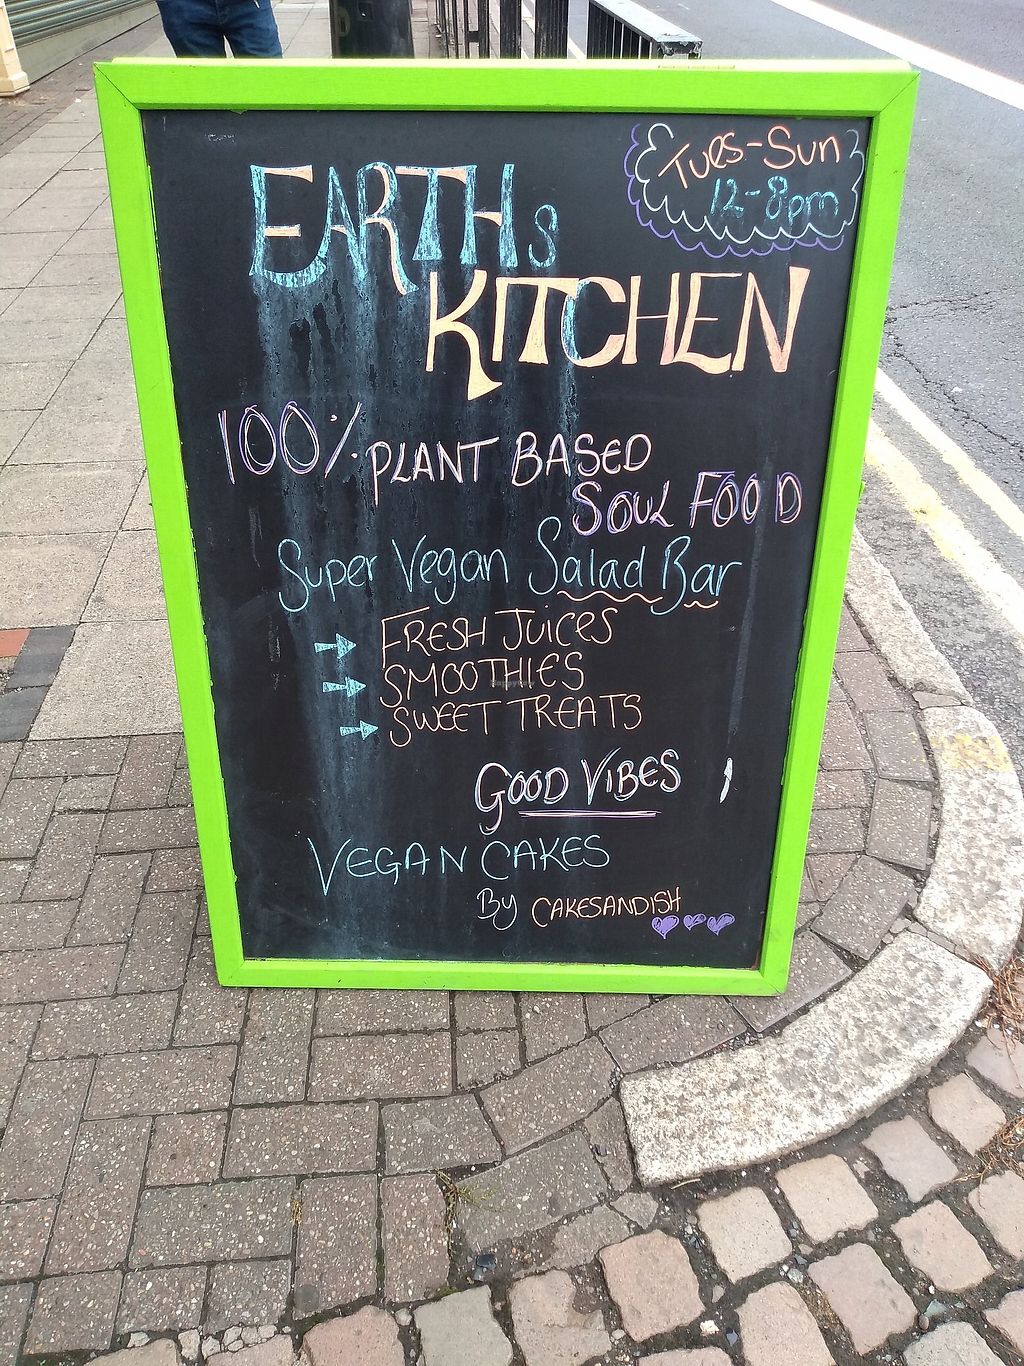 Tues-Sun
12-8pm
EARTHs
KITCHEN
100% PLANT BASED
SOUL FOOD
Super Vegan Salad Bar
FRESH JUICES
SMOOTHIES
SWEET TREATS
GOOD VIBES
VEGAN CAKES
By CAKESANDISH